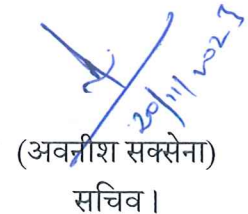 20/11/2023
(अवनीश सक्सेना)
सचिव।